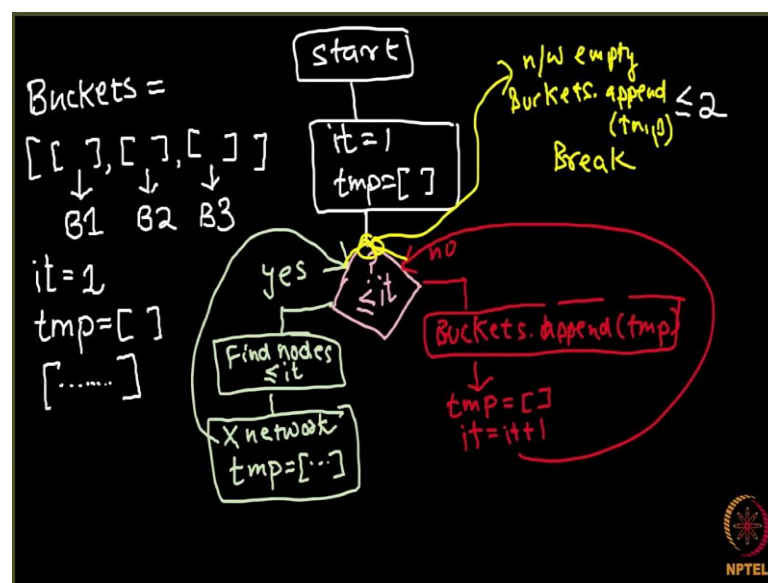 Buckets =
[[ ], [ ], [ ]]
B1 B2 B3
it=1
tmp=[ ]
[.......]
start
it=1
tmp=[ ]
n/w empty
Buckets.append ≤2
(tmp)
Break
yes
?
≤it
no
Find nodes
≤it
X network
tmp=[...]
Buckets.append(tmp)
tmp=[]
it=it+1
NPTEL